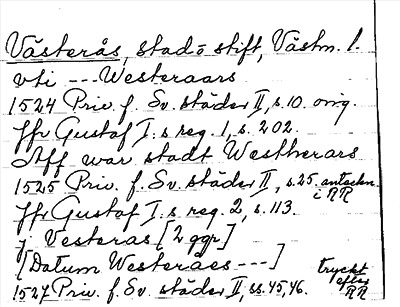 Västerås, stad o stift, Västm. l.
vti --- Westeraars
1524 Priv. f. Sv. städer II, s. 10. orig.
Jfr Gustaf I:s reg. 1, s. 202.
Aff war stadt Westherars
1525 Priv. f. Sv. städer II, s. 25. anteckn. i RR
Jfr Gustaf I:s reg. 2, s. 113.
j Vesteras [2 ggr]
[Datum Westeråes ---]
1527 Priv. f. Sv. städer II, ss. 45, 46. tryckt efter RR